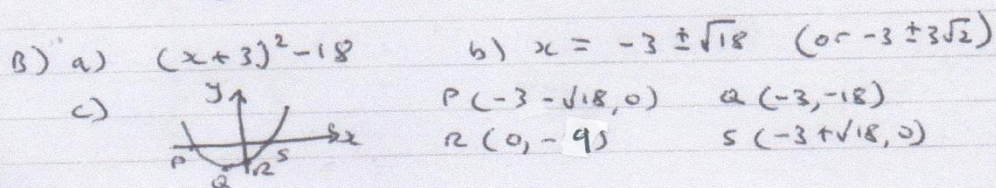 B) a) (x+3)²-18 b) x = -3 ±√18 (or -3 ±3√2)
c) y x P Q R S P(-3-√18,0) Q(-3,-18)
R(0,-9) S(-3+√18,0)